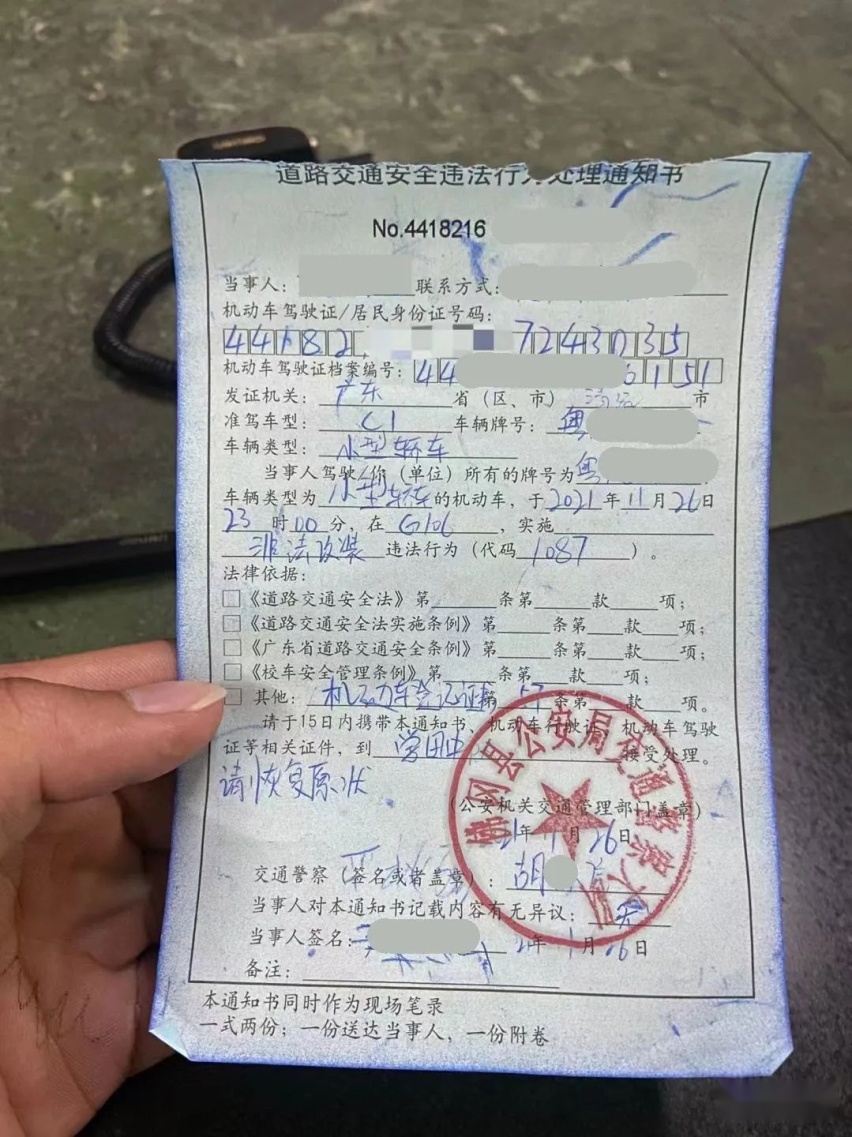 道路交通安全违法行为处理通知书
No.4418216
当事人: 联系方式:
机动车驾驶证/居民身份证号码:
44182 7243035
机动车驾驶证档案编号: 44 6151
发证机关: 广东 省(区、市) 市
准驾车型: C1 车辆牌号: 粤
车辆类型: 小型轿车
当事人驾驶/你(单位)所有的牌号为粤
车辆类型为 小型轿车 的机动车, 于 2021 年 11 月 26 日
23 时 00 分, 在 G106 , 实施
非法改装 违法行为(代码 1087 )。
法律依据:
□《道路交通安全法》第 条第 款 项;
□《道路交通安全法实施条例》第 条第 款 项;
□《广东省道路交通安全条例》第 条第 款 项;
□《校车安全管理条例》第 条第 款 项;
□ 其他: 机动车登记证 第 57 条第 款 项。
请于15日内携带本通知书、机动车行驶证、机动车驾驶
证等相关证件, 到 接受处理。
请恢复原状
(公安机关交通管理部门盖章)
21年1月26日
佛冈县公安局交通警察大队
交通警察(签名或者盖章): 胡
当事人对本通知书记载内容有无异议: 无
当事人签名: 年1月26日
备注:
本通知书同时作为现场笔录
一式两份; 一份送达当事人, 一份附卷